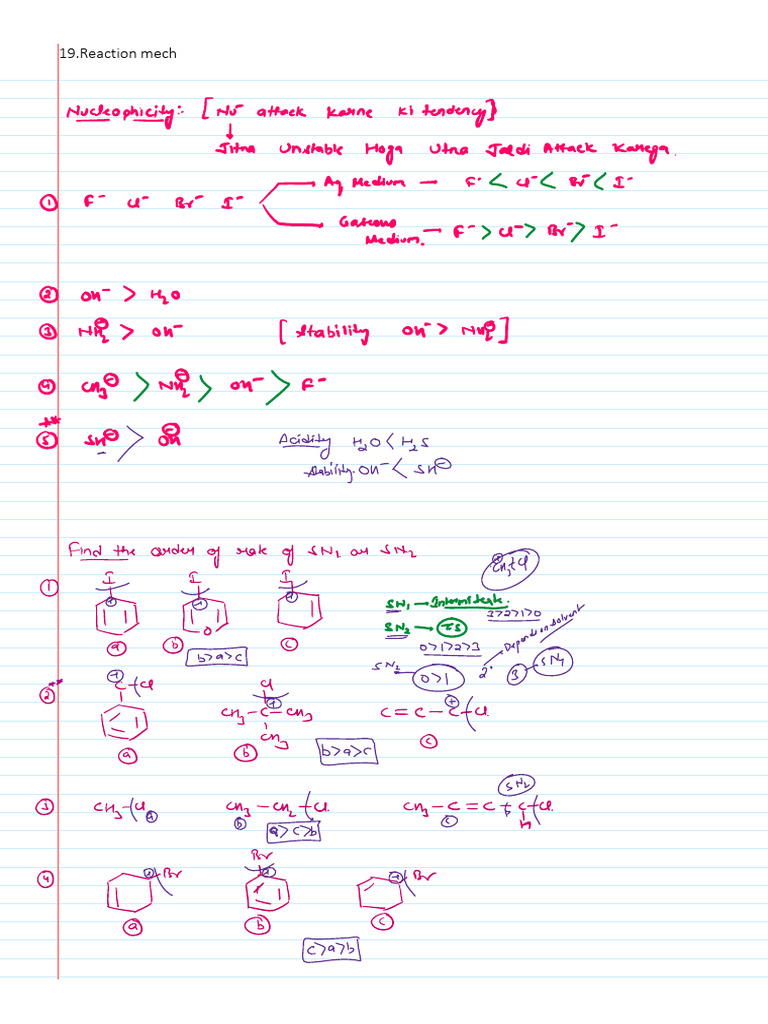 19.Reaction mech
Nucleophicity:- [Nu⁻ attack karne ki tendency]
↓
Jitna Unstable Hoga Utna Jaldi Attack Karega.
① F⁻ Cl⁻ Br⁻ I⁻
Aq Medium — F⁻ < Cl⁻ < Br⁻ < I⁻
Gaseous Medium. — F⁻ > Cl⁻ > Br⁻ > I⁻
② OH⁻ > H₂O
③ NH₂⊖ > OH⁻ [Stability OH⁻ > NH₂⊖]
④ CH₃⊖ > NH₂⊖ > OH⁻ > F⁻
**
⑤ SH⊖ > OH⊖
Acidity H₂O < H₂S
Stability. OH⁻ < SH⊖
Find the order of rate of SN1 or SN2
CH₃+Cl
① I I I
O
ⓐ ⓑ ⓒ
b>a>c
SN1 → Intermidiate.
3>2>1>0
SN2 → TS
0>1>2>3
SN2 0>1
2° Depend on solvent
3 SN1
② **
C Cl
ⓐ
Cl
CH₃ – C – CH₃
CH₃
ⓑ
C = C – C Cl.
ⓒ
b>a>c
③ CH₃ Cl ⓐ
CH₃ – CH₂ Cl. ⓑ
CH₃ – C = C + C Cl. ⓒ
H
SN2
a>c>b
④ Br Br Br
ⓐ ⓑ ⓒ
c>a>b